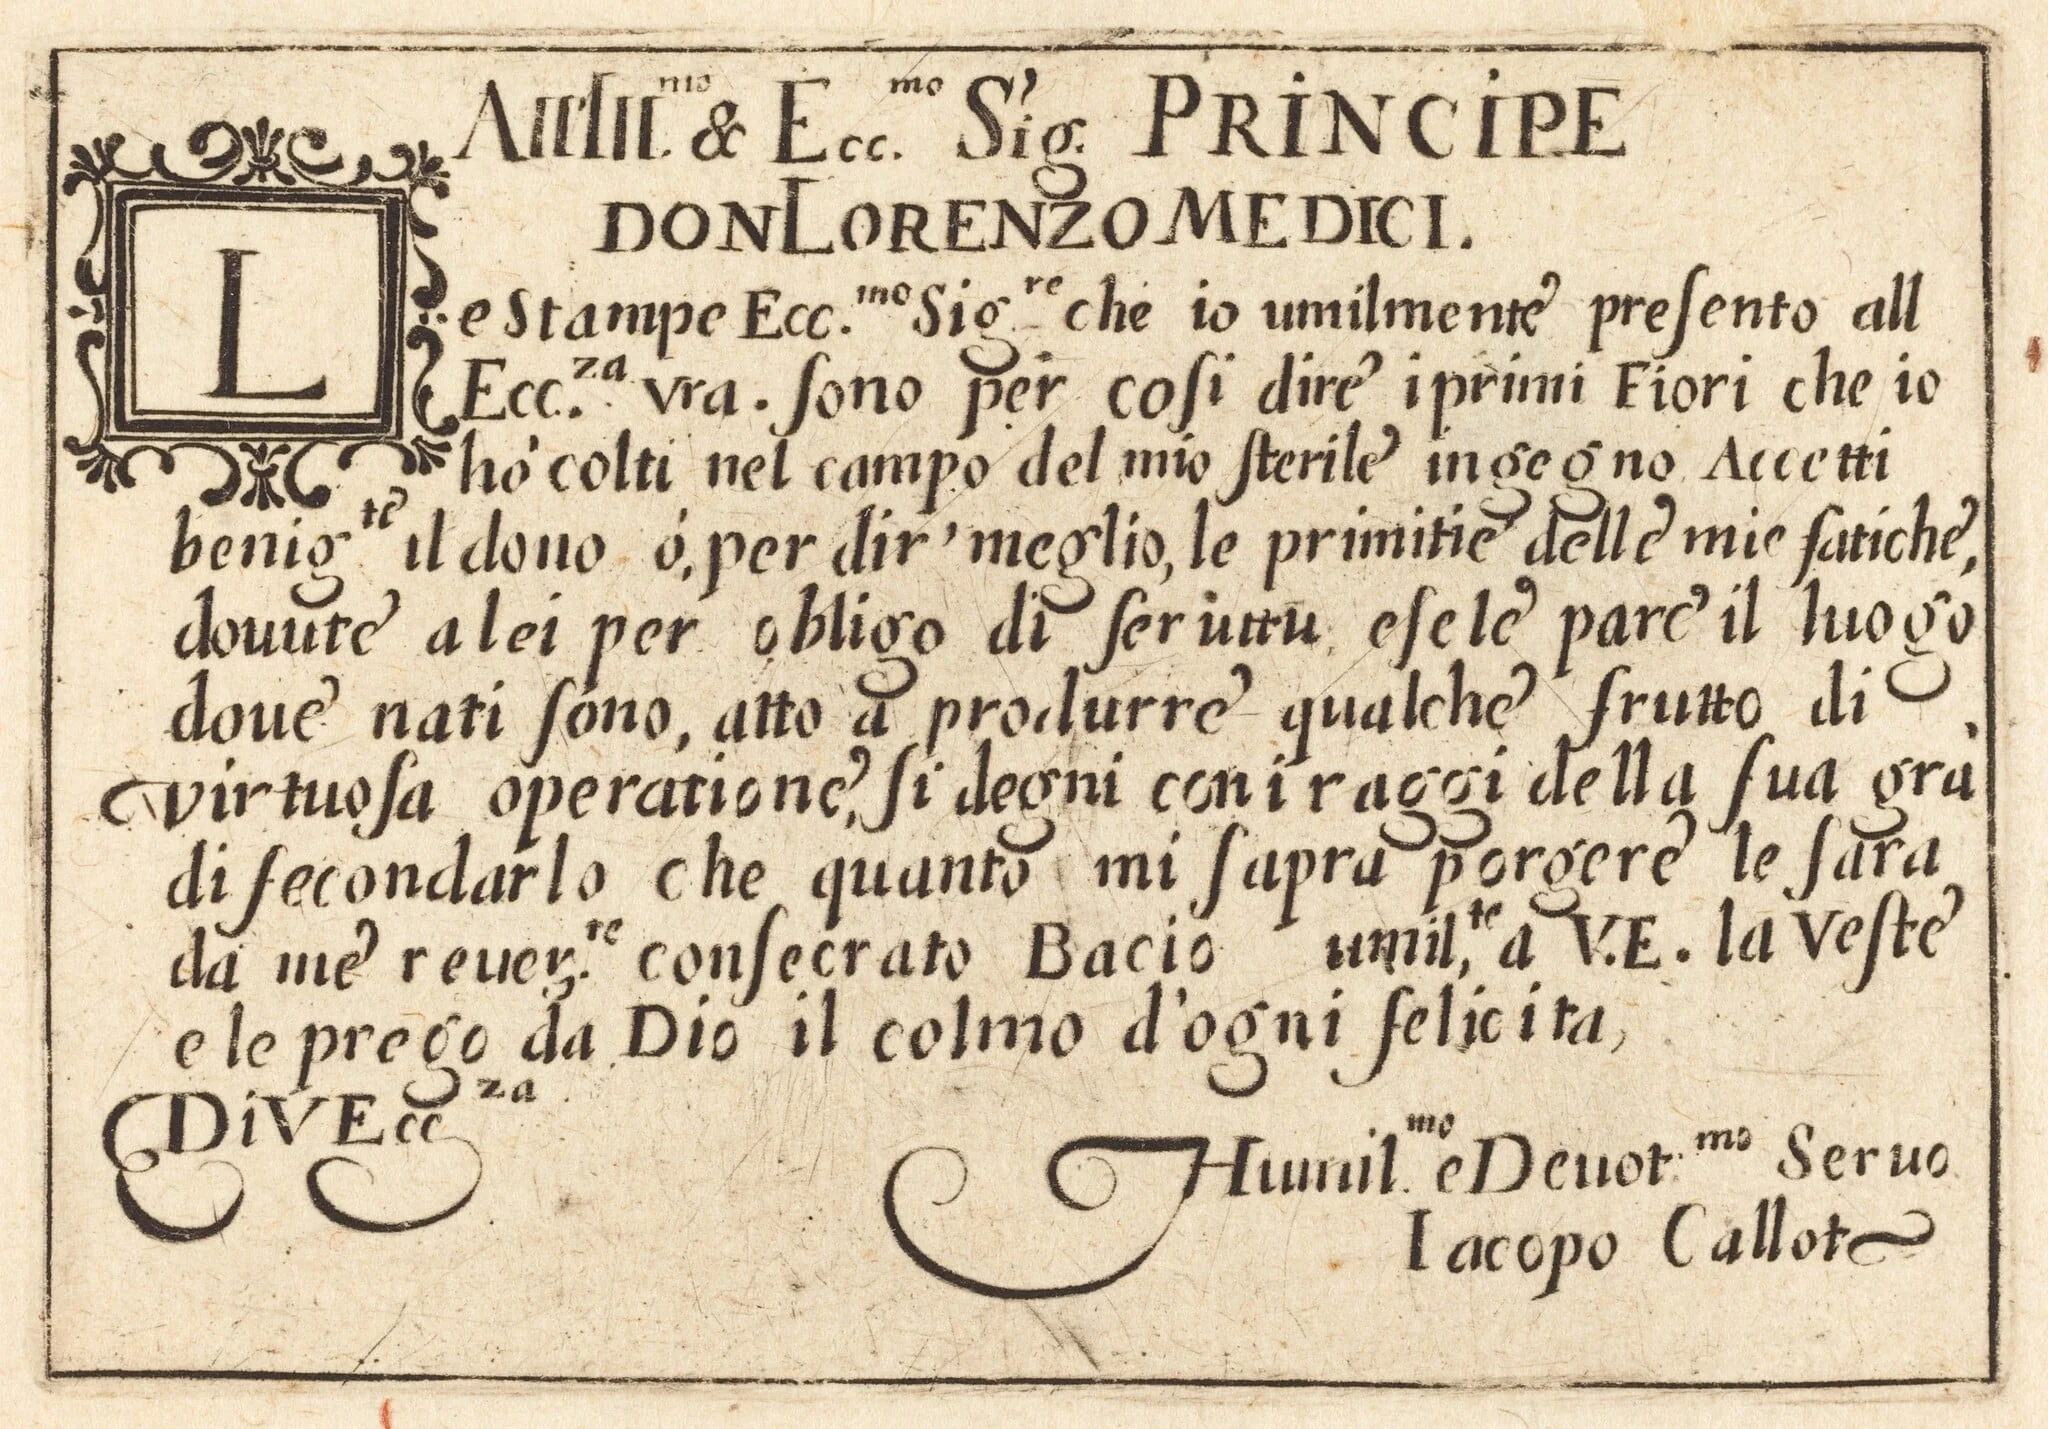 All'Ill.mo & Ecc.mo Sig. PRiNCiPE
DON LORENZO MEDICI.
Le Stampe Ecc.mo Sig.re che io umilmente preſento all
Ecc.za vra. ſono per coſi dire i primi Fiori che io
hó colti nel campo del mio ſterile ingegno Accetti
benig.te il dono ó, per dir' meglio, le primitie delle mie fatiche,
douute a lei per obligo di ſeruitu, e ſe le pare il luogo
doue nati ſono, atto à produrre qualche frutto di
virtuoſa operatione, ſi degni con i raggi della ſua gra
di fecondarlo che quanto mi ſapra porgere le ſara
da me reuer.re conſecrato Bacio umil.te a V.E. la Veſte
e le prego da Dio il colmo d'ogni felicita,
Di V Ecc za
Humil.mo e Deuot.mo Seruo
Iacopo Callot